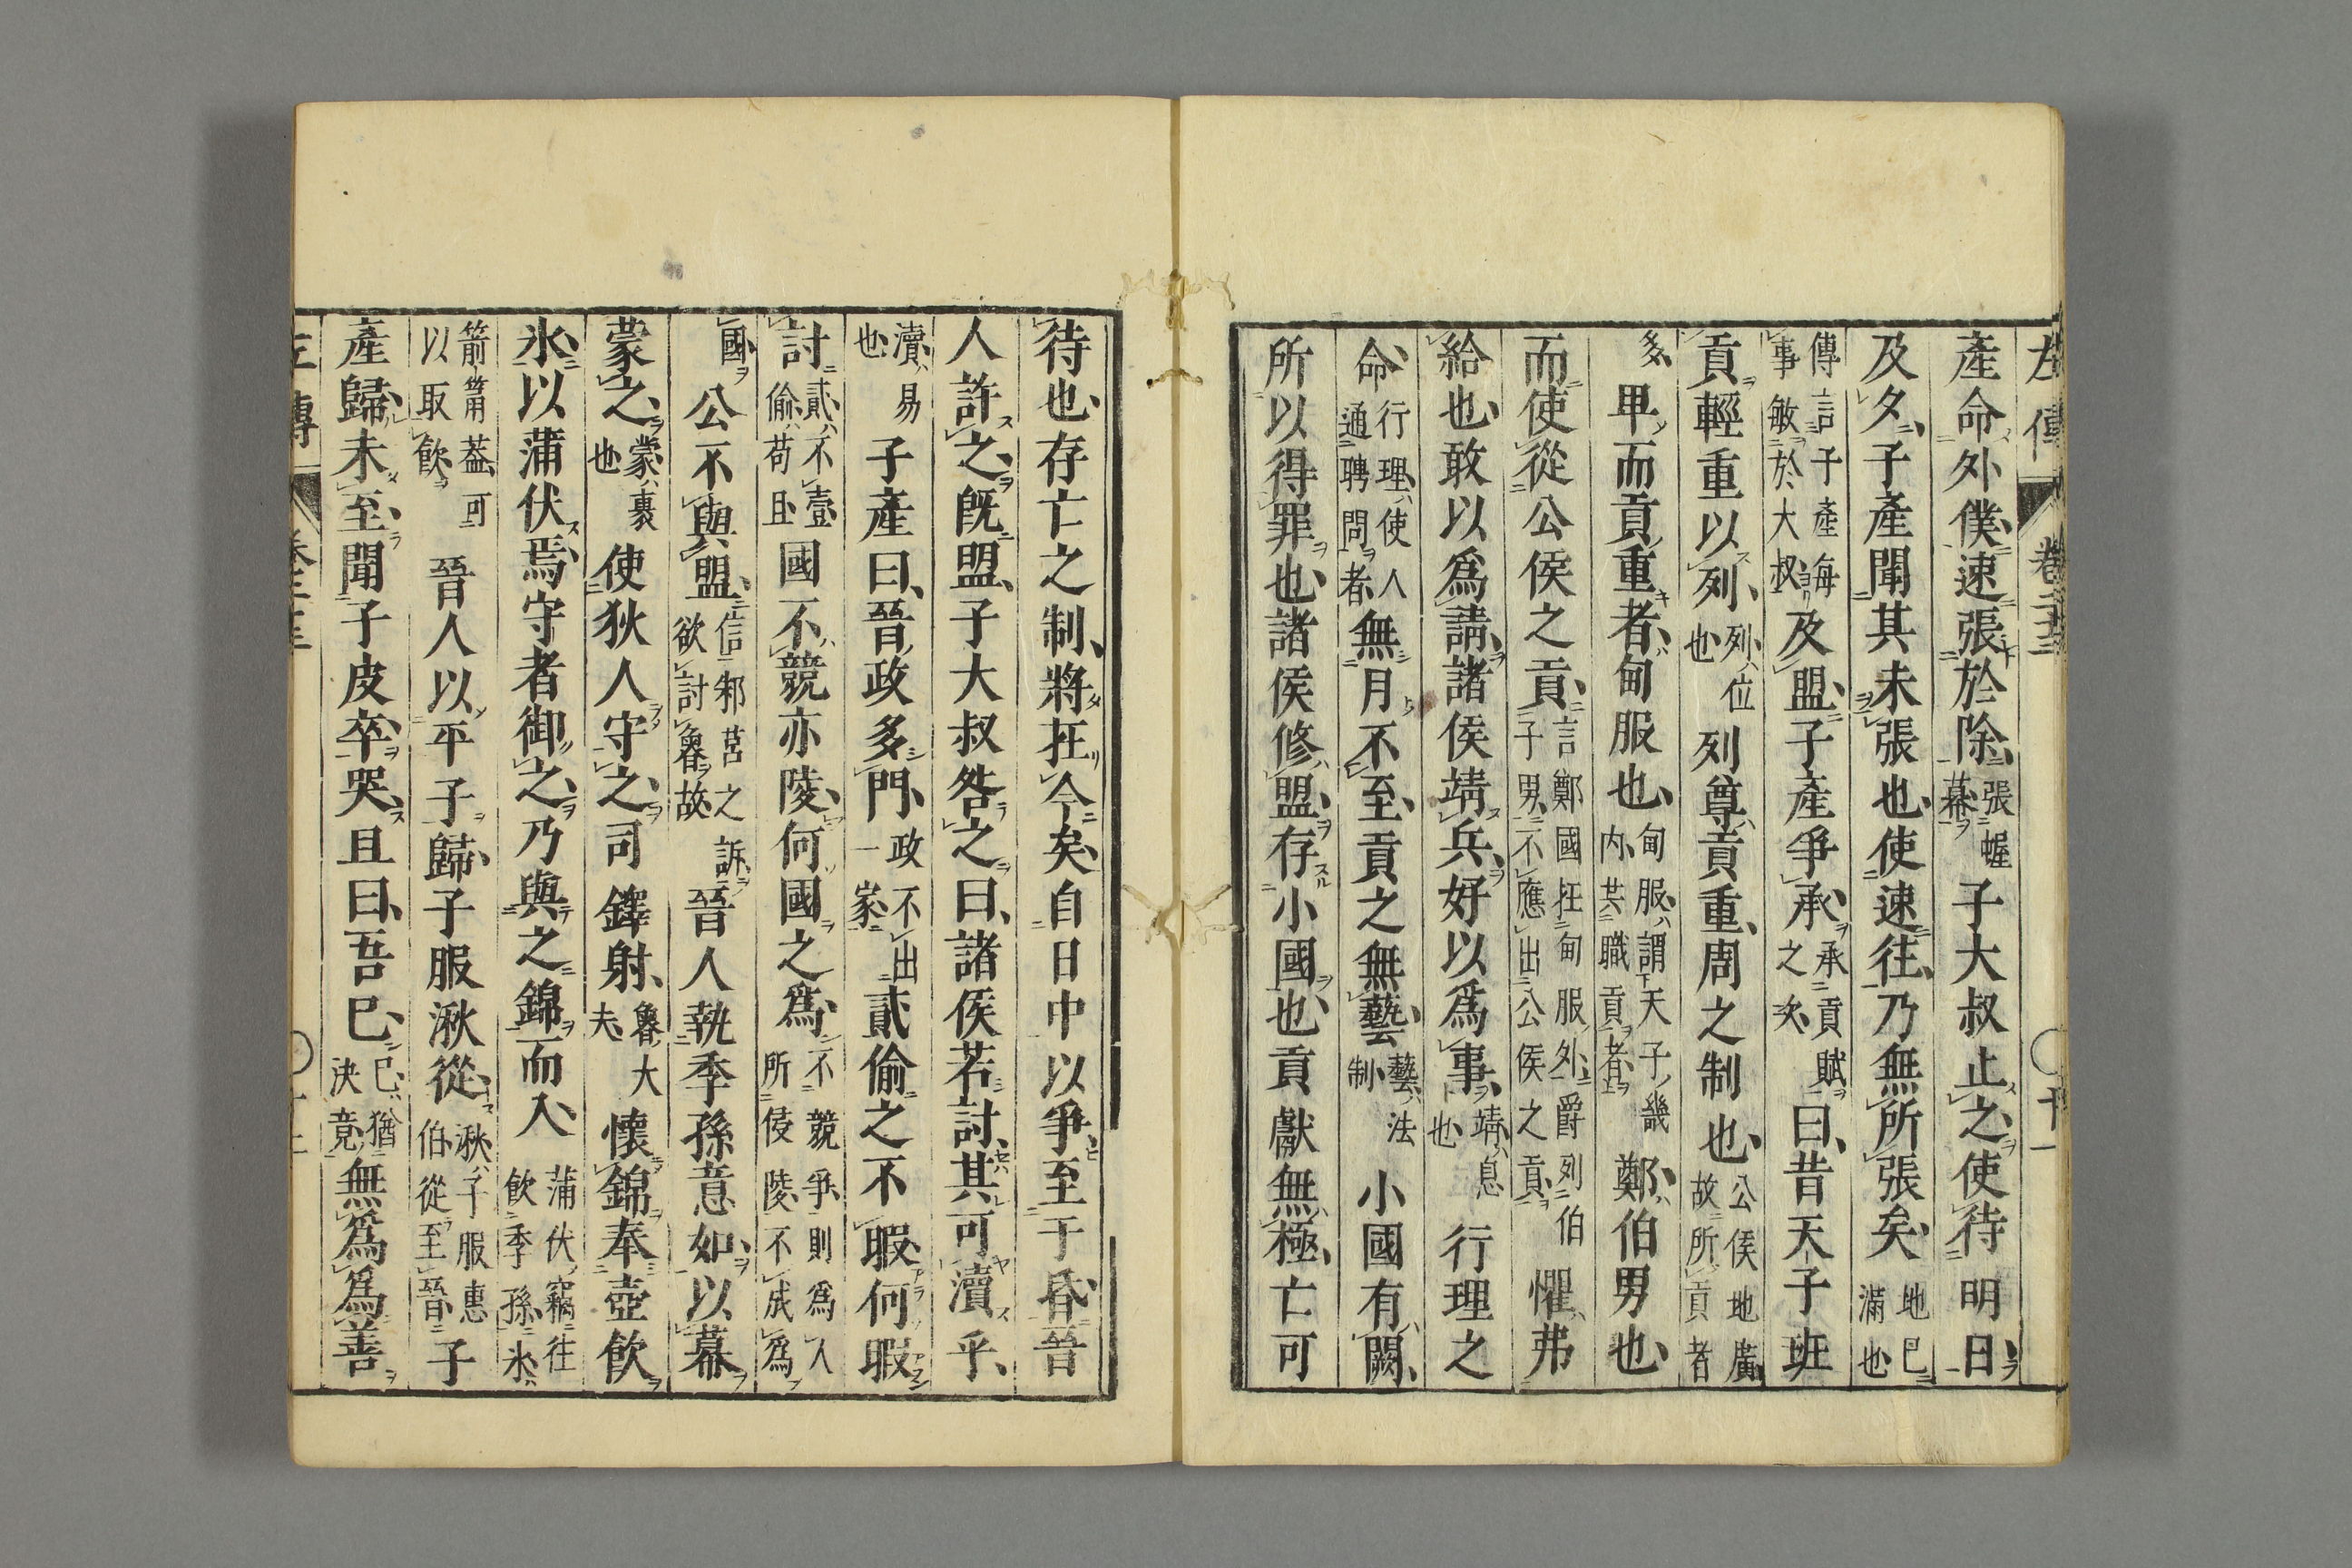 左傳 卷二十三 〇 十一
產命外僕速張於除張幄幕子大叔止之使待明日
及夕子產聞其未張也使速往乃無所張矣地已滿也
傳言子產每事敏於大叔及盟子產爭承承貢賦之次曰昔天子班
貢輕重以列列位也列尊貢重周之制也公侯地廣故所貢者
多卑而貢重者甸服也甸服謂天子畿内共職貢者鄭伯男也
而使從公侯之貢言鄭國在甸服外爵列伯子男不應出公侯之貢懼弗
給也敢以爲請諸侯靖兵好以爲事靖息也行理之
命行理使人通聘問者無月不至貢之無藝藝法制小國有闕
所以得罪也諸侯修盟存小國也貢獻無極亡可
待也存亡之制將在今矣自日中以爭至于昏晉
人許之既盟子大叔咎之曰諸侯若討其可瀆乎
瀆易也子產曰晉政多門政不出一家貳偷之不暇何暇
討貳不壹偷苟且國不競亦陵何國之爲不競爭則爲人所侵陵不成爲
國公不與盟信邾莒之訴欲討魯故晉人執季孫意如以幕
蒙之蒙裹也使狄人守之司鐸射魯大夫懷錦奉壺飲
氷以蒲伏焉守者御之乃與之錦而入蒲伏竊往飲季孫氷
箭筩葢可以取飲晉人以平子歸子服湫從湫子服惠伯從至晉子
產歸未至聞子皮卒哭且曰吾已已猶決竟無爲爲善